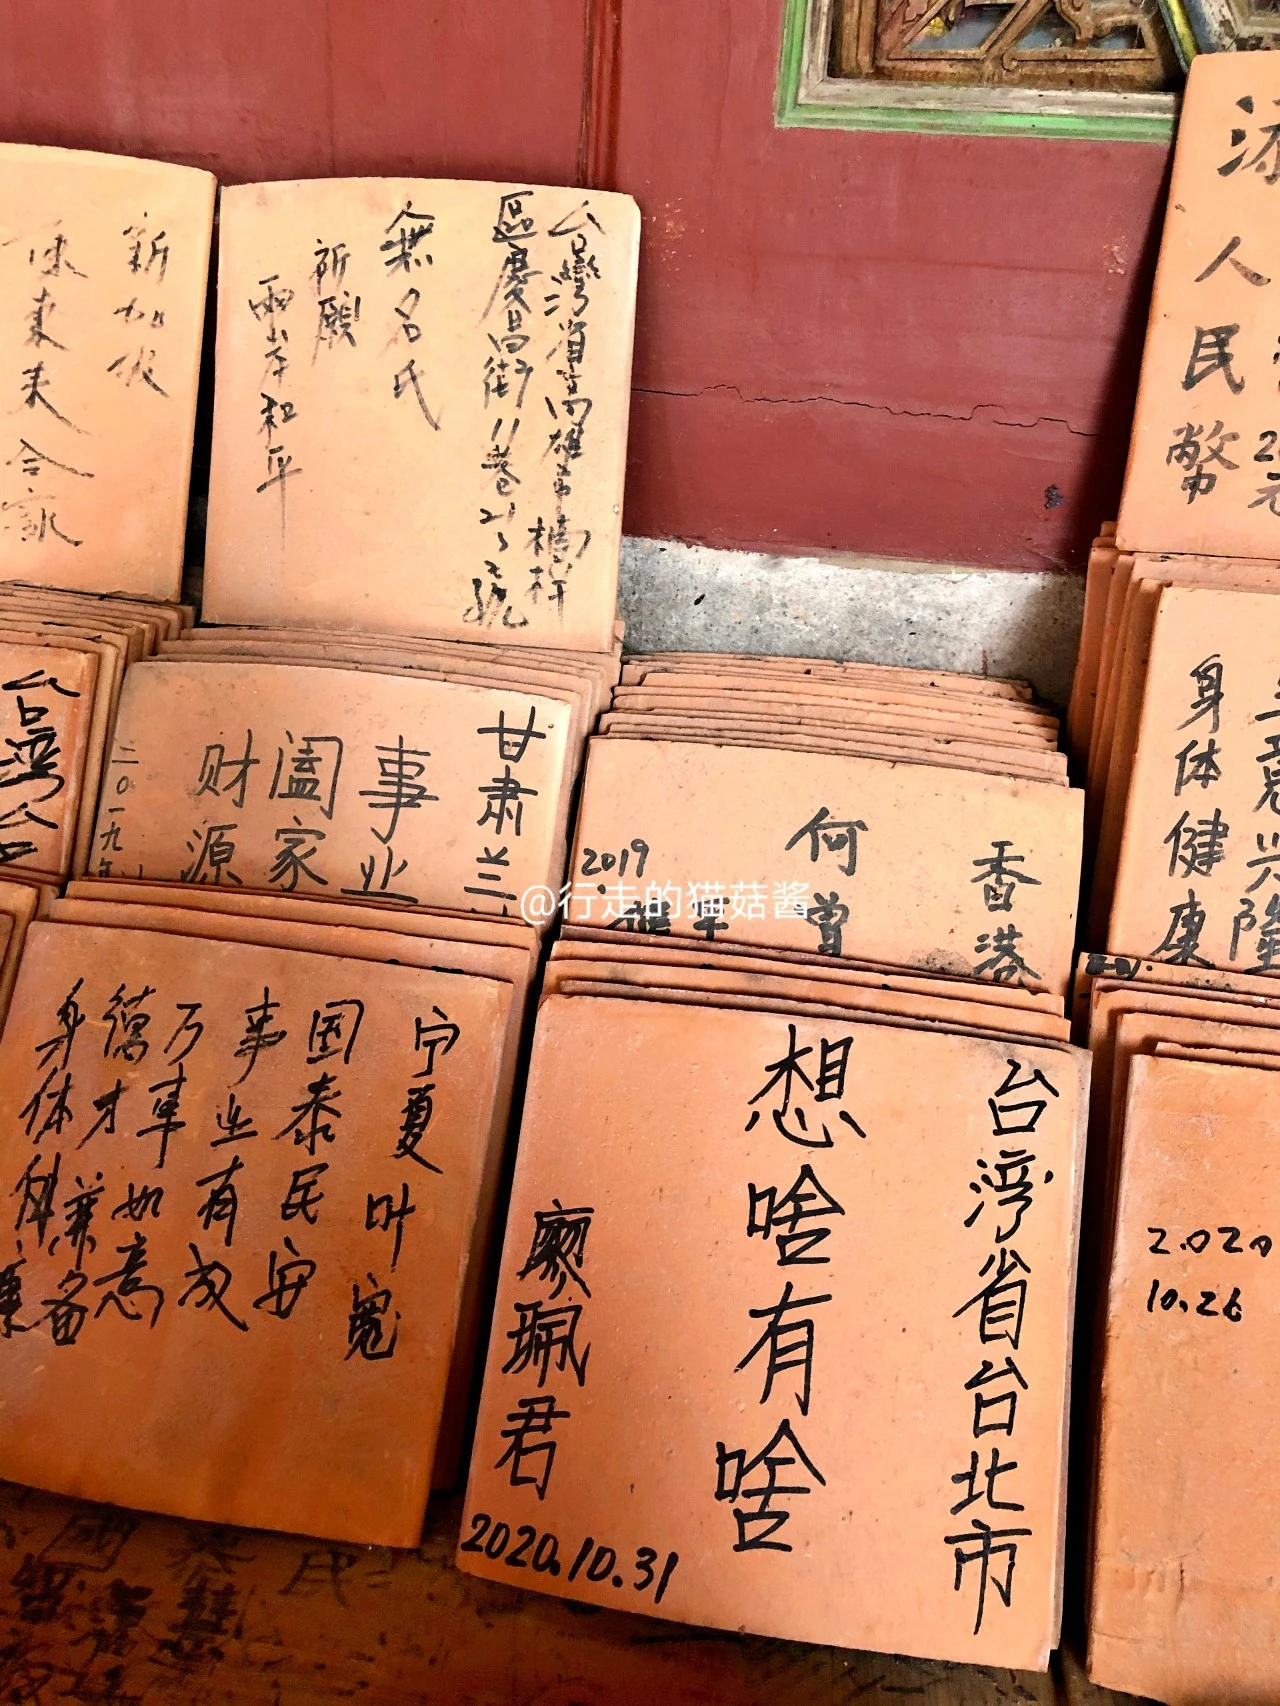 新加坡
合家
台灣省高雄市楠梓
區慶昌街11巷21之2號
無名氏
祈願
兩岸和平
人民幣
台灣台
甘肃兰
事业
阖家
财源
二〇一九年
香港
何尊
2019
身体健康
兴隆
@行走的猫菇酱
宁夏叶寬
国泰民安
事业有成
万事如意
德才兼备
身体
台湾省台北市
想啥有啥
廖珮君
2020.10.31
2020
10.26